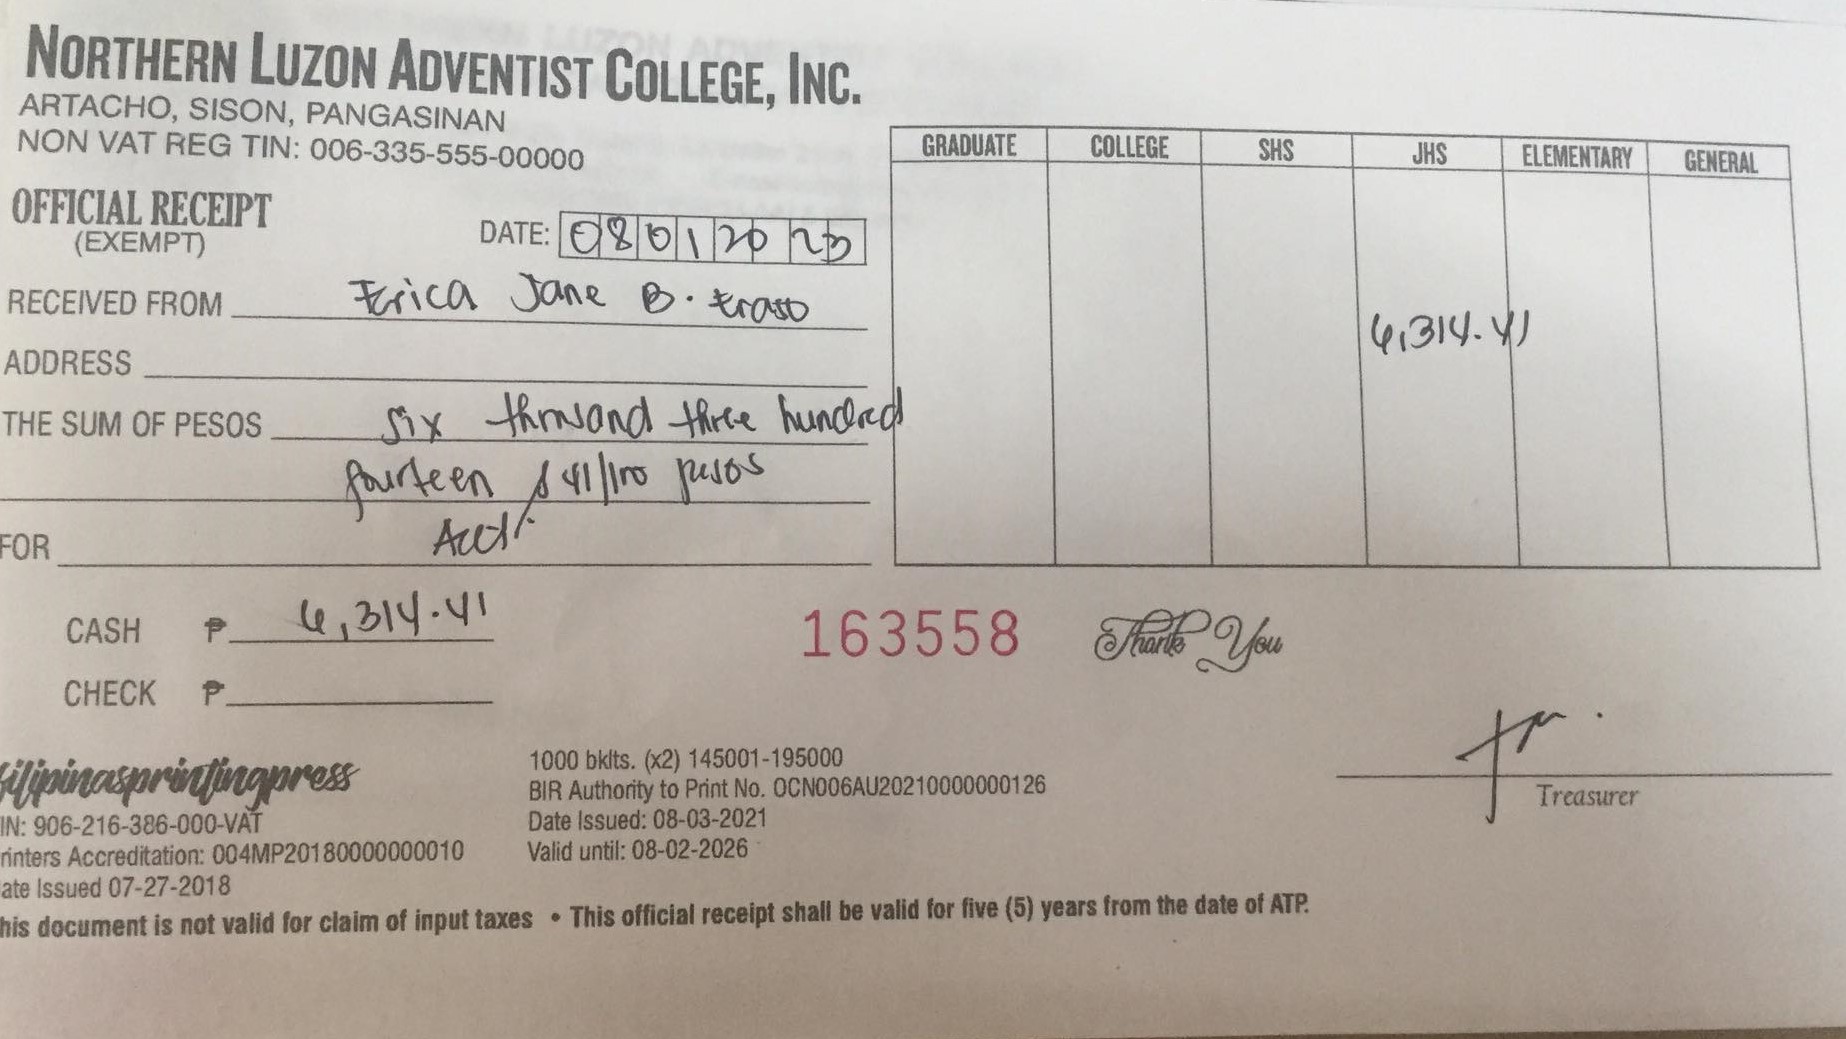 NORTHERN LUZON ADVENTIST COLLEGE, INC.
ARTACHO, SISON, PANGASINAN
NON VAT REG TIN: 006-335-555-00000
OFFICIAL RECEIPT
(EXEMPT)
DATE: 08012023
RECEIVED FROM Erica Jane B. Eraso
ADDRESS
THE SUM OF PESOS six thousand three hundred
fourteen & 41/100 pesos
FOR Acct.
CASH ₱ 6,314.41
CHECK ₱
GRADUATE COLLEGE SHS JHS ELEMENTARY GENERAL
6,314.41
163558 Thank You
Treasurer
filipinasprintingpress
IN: 906-216-386-000-VAT
rinters Accreditation: 004MP20180000000010
ate Issued 07-27-2018
1000 bklts. (x2) 145001-195000
BIR Authority to Print No. OCN006AU20210000000126
Date Issued: 08-03-2021
Valid until: 08-02-2026
his document is not valid for claim of input taxes • This official receipt shall be valid for five (5) years from the date of ATP.